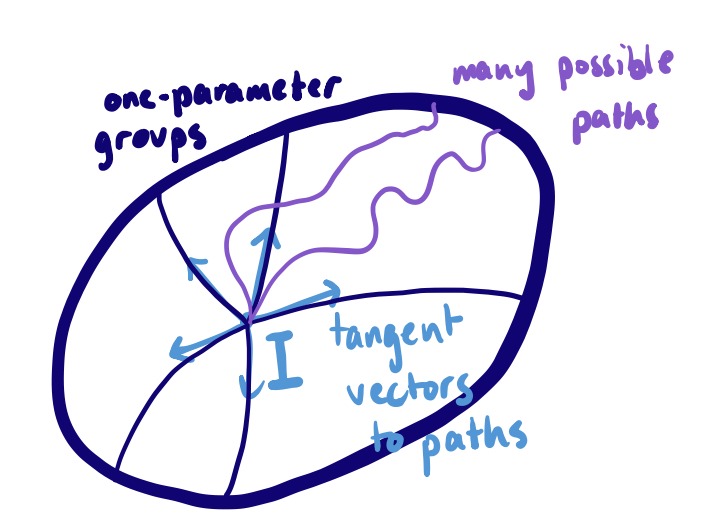 one-parameter
groups
many possible
paths
I
tangent
vectors
to paths